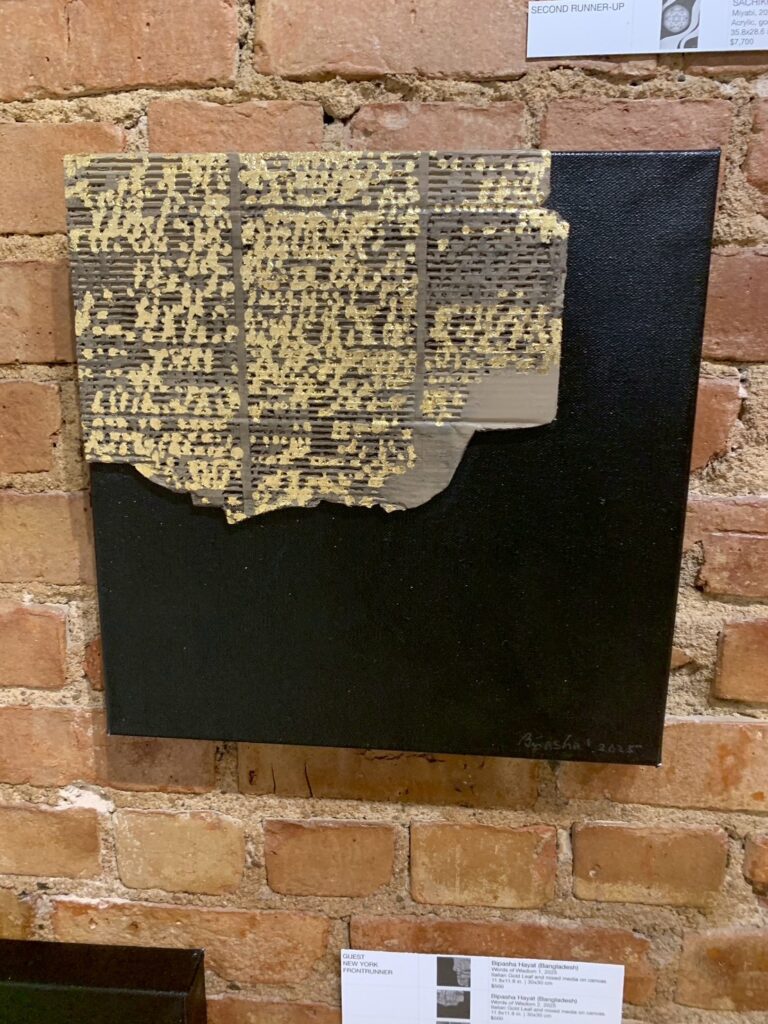 SECOND RUNNER-UP
SACHIK
Miyabi, 20
Acrylic, go
35.8x28.6
$7,700
Bipasha 2025
GUEST
NEW YORK
FRONTRUNNER
Bipasha Hayat (Bangladesh)
Words of Wisdom 1, 2025
Italian Gold Leaf and mixed media on canvas
11.8x11.8 in. | 30x30 cm
$500
Bipasha Hayat (Bangladesh)
Words of Wisdom 2, 2025
Italian Gold Leaf and mixed media on canvas
11.8x11.8 in. | 30x30 cm
$500